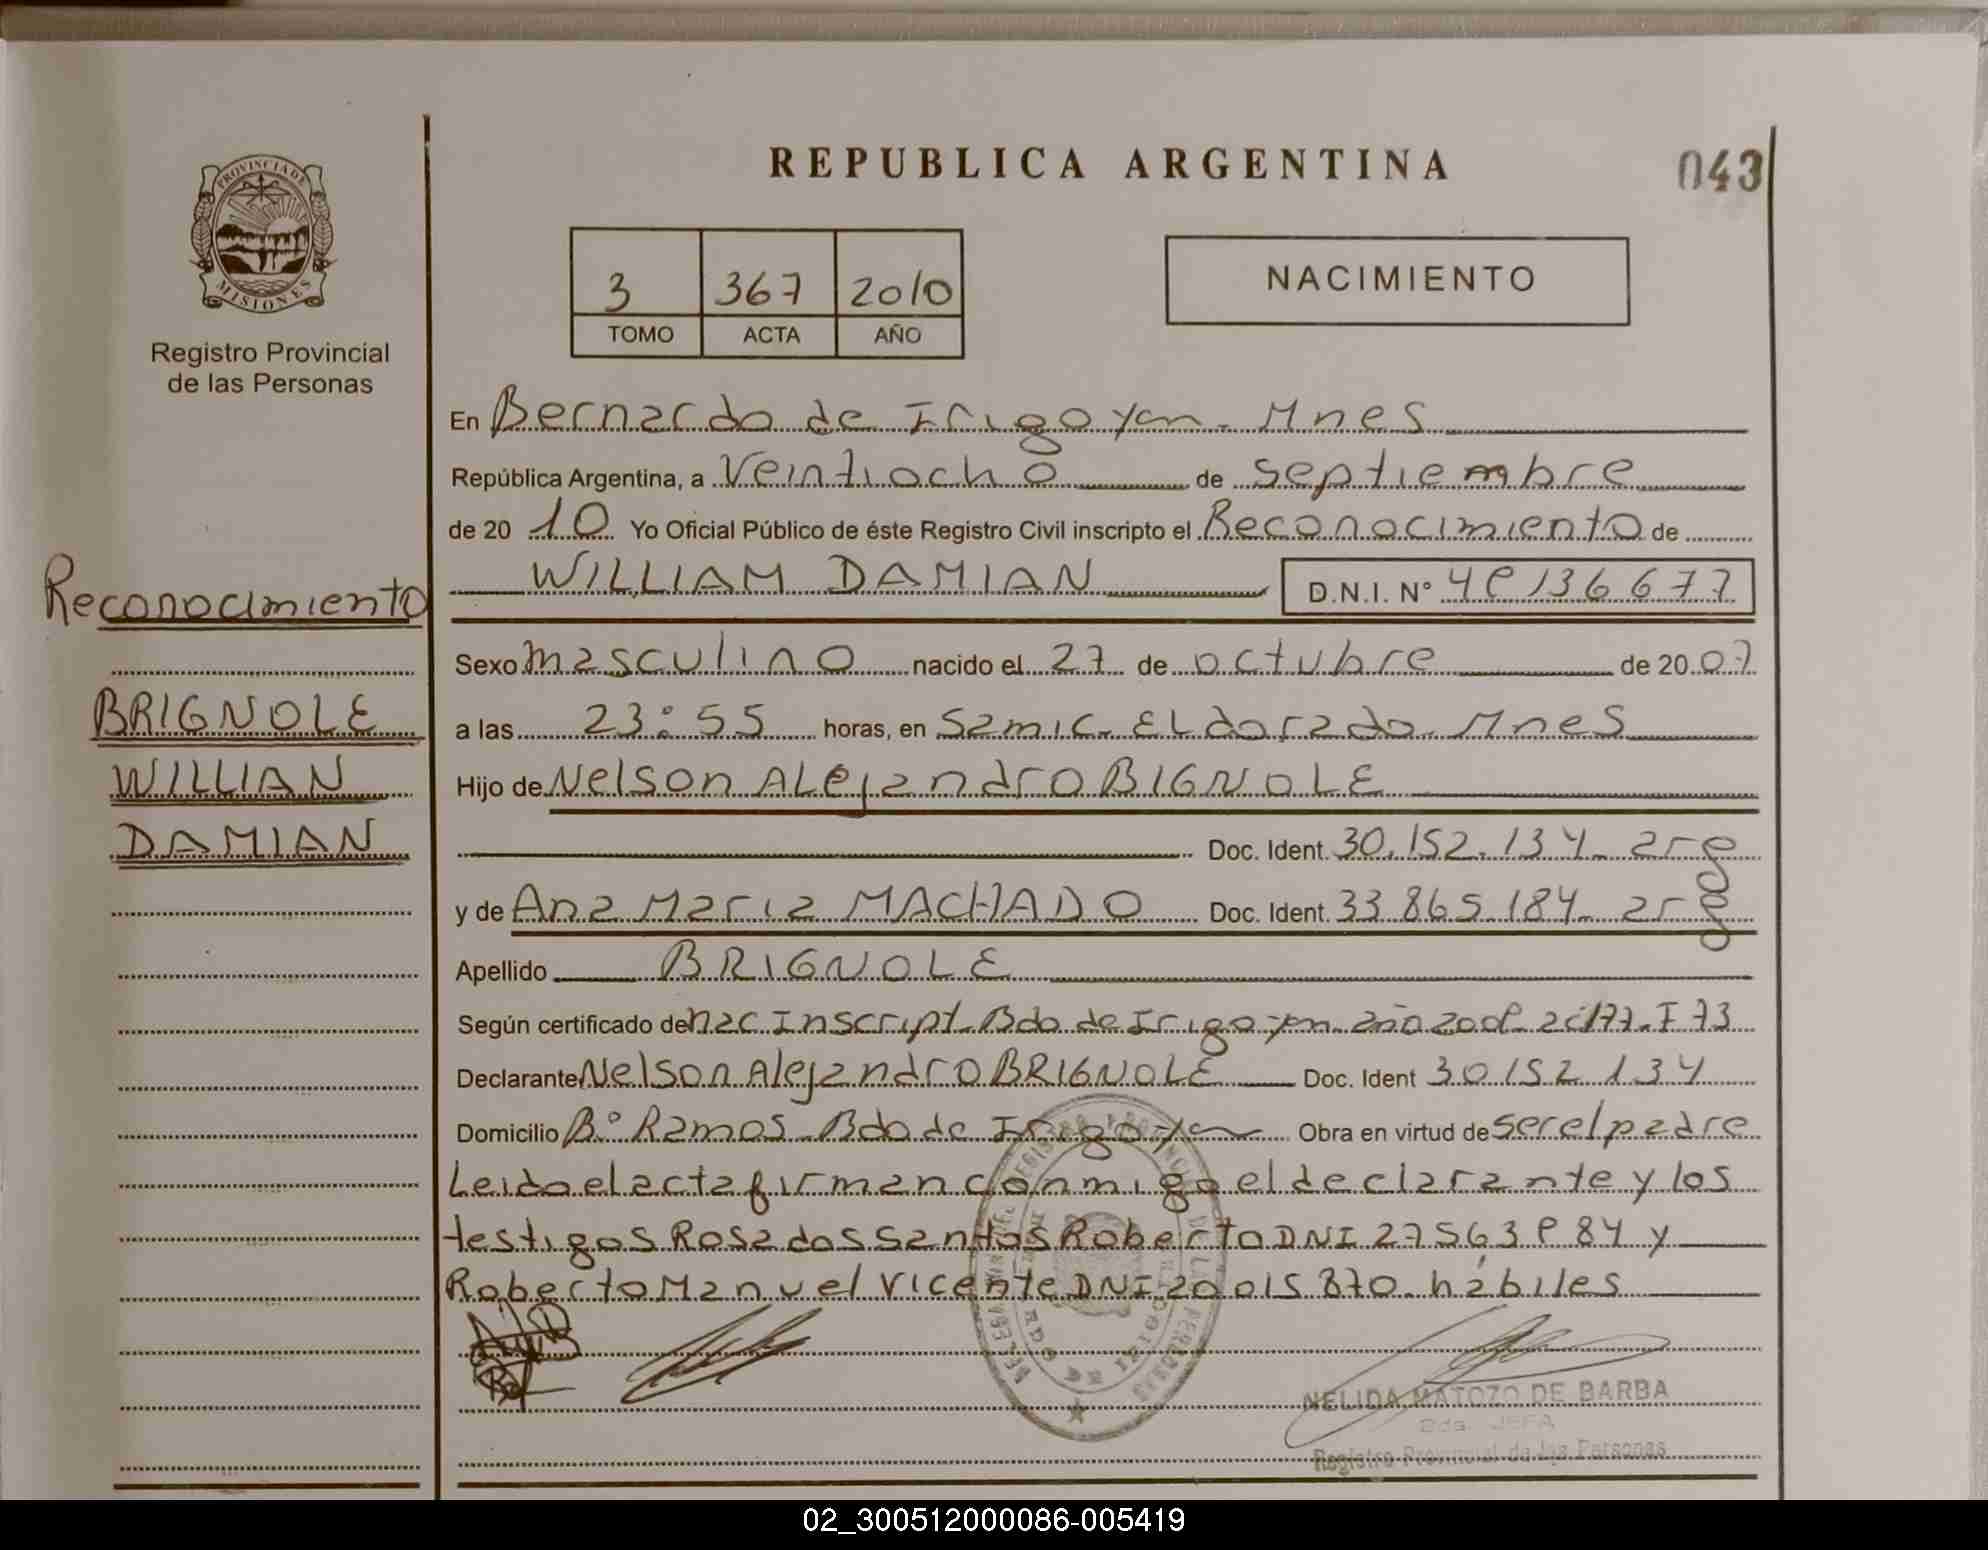 REPUBLICA ARGENTINA
043
PROVINCIA DE
MISIONES
Registro Provincial
de las Personas
3 367 2010
TOMO ACTA AÑO
NACIMIENTO
En Bernardo de Irigoyen - Mnes
República Argentina, a Veintiocho de septiembre
de 20 10 Yo Oficial Público de éste Registro Civil inscripto el Reconocimiento de
WILLIAM DAMIAN D.N.I. N° 48136677
Reconocimiento
BRIGNOLE
WILLIAN
DAMIAN
Sexo masculino nacido el 27 de octubre de 20 07
a las 23:55 horas, en Samic. ELdorado. Mnes
Hijo de Nelson ALejandro BIGNOLE
Doc. Ident. 30.152.134 - arg
y de Ana Maria MACHADO Doc. Ident. 33 865.184 - arg
Apellido BRIGNOLE
Según certificado de nac Inscript. Bdo de Irigoyen año 2008 ac 177. F 73
Declarante Nelson Alejandro BRIGNOLE Doc. Ident 30 152 134
Domicilio B° Ramos - Bdo de Irigoyen Obra en virtud de ser el padre
Leido el acta firman conmigo el declarante y los
testigos Rosa dos Santos Roberto DNI 27563884 y
Roberto Manuel Vicente DNI 20015870 - hábiles
NELIDA MATOZO DE BARBA
JEFA
Registro Provincial de las Personas
02_300512000086-005419